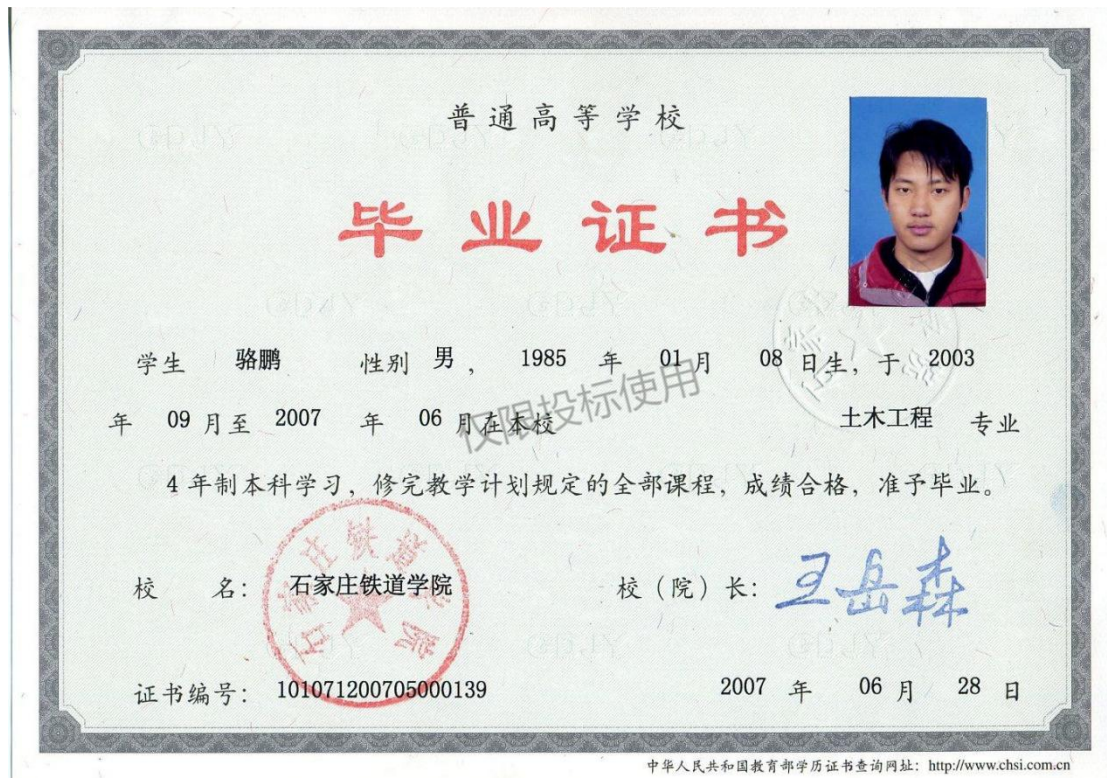 普通高等学校
毕业证书
学生 骆鹏 性别 男， 1985 年 01 月 08 日生，于 2003
年 09 月至 2007 年 06 月在本校 土木工程 专业
仅限投标使用
4 年制本科学习，修完教学计划规定的全部课程，成绩合格，准予毕业。
石家庄铁道学院
校 名： 石家庄铁道学院 校（院）长： 王岳森
证书编号： 101071200705000139 2007 年 06 月 28 日
中华人民共和国教育部学历证书查询网址：http://www.chsi.com.cn